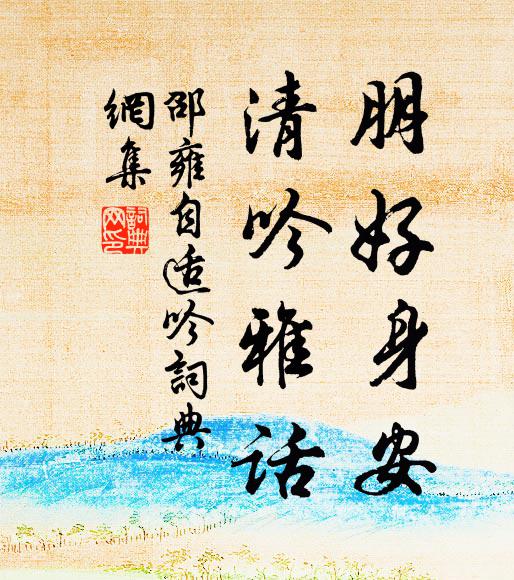 朋好身安
清吟雅话
邵雍自适吟詞典
網集
詞典
网印